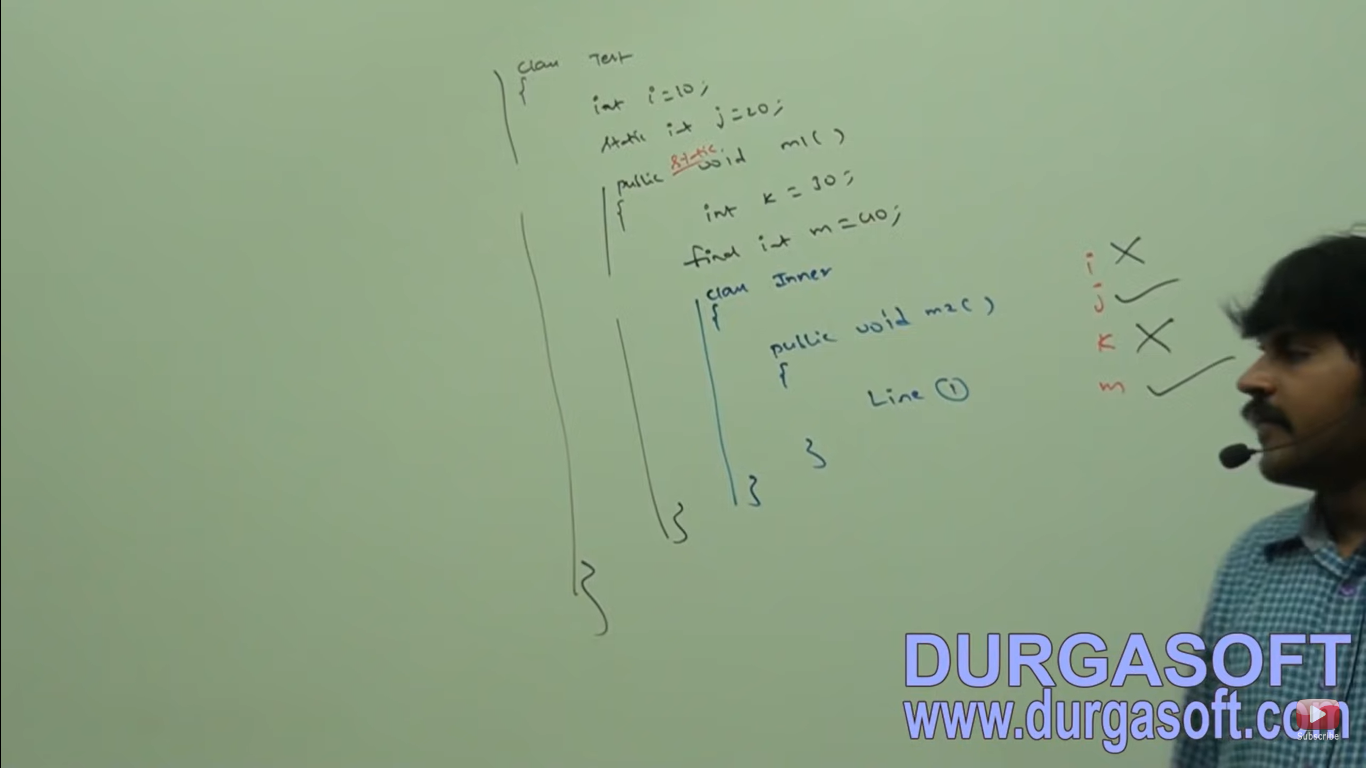 class Test
{
int i=10;
static int j=20;
public static void m1( )
{
int k = 30;
final int m = 40;
class Inner
{
public void m2( )
{
Line 1
}
}
}
}
i X
j ✓
k X
m ✓
DURGASOFT
www.durgasoft.com
Subscribe